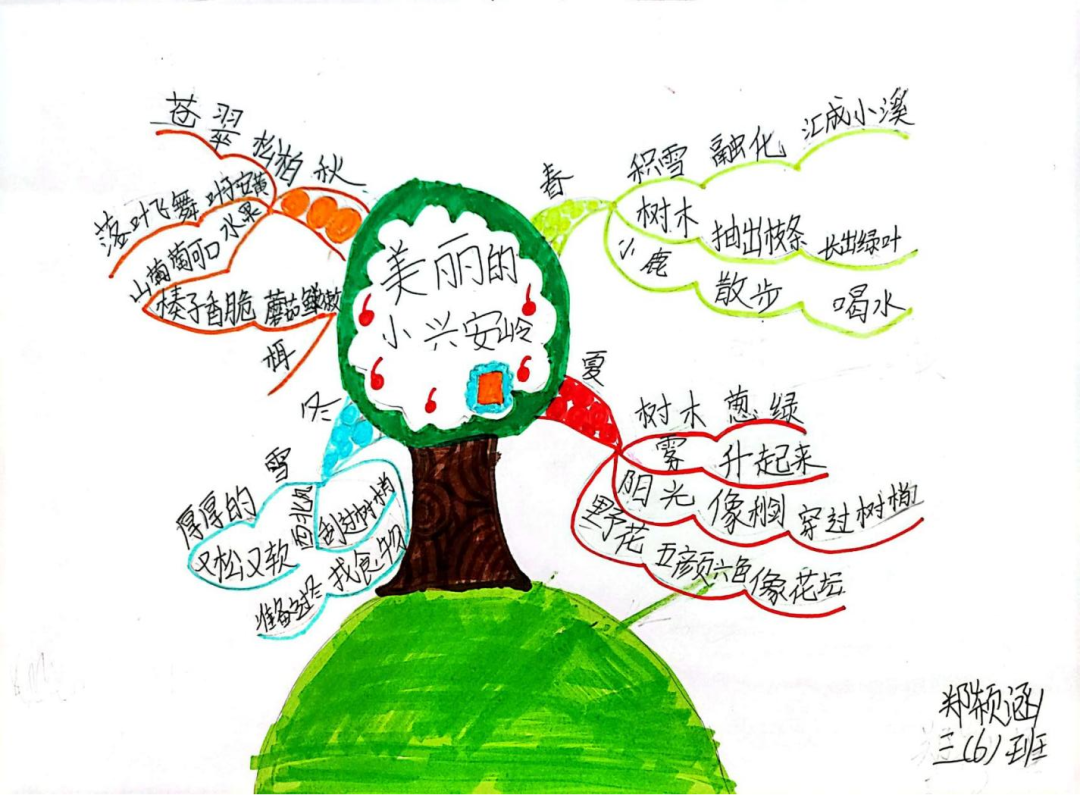 美丽的
小兴安岭
春
积雪 融化 汇成小溪
树木 抽出枝条 长出绿叶
小鹿 散步 喝水
夏
树木 葱绿
雾 升起来
阳光 像利剑 穿过树梢
野花 五颜六色 像花坛
秋
松柏 苍翠
落叶飞舞
水果
山葡萄可口
榛子香脆 蘑菇鲜嫩
冬
雪
厚厚的
又松又软
西北风 刮过树梢
准备过冬 找食物
郑颖涵
三(6)班